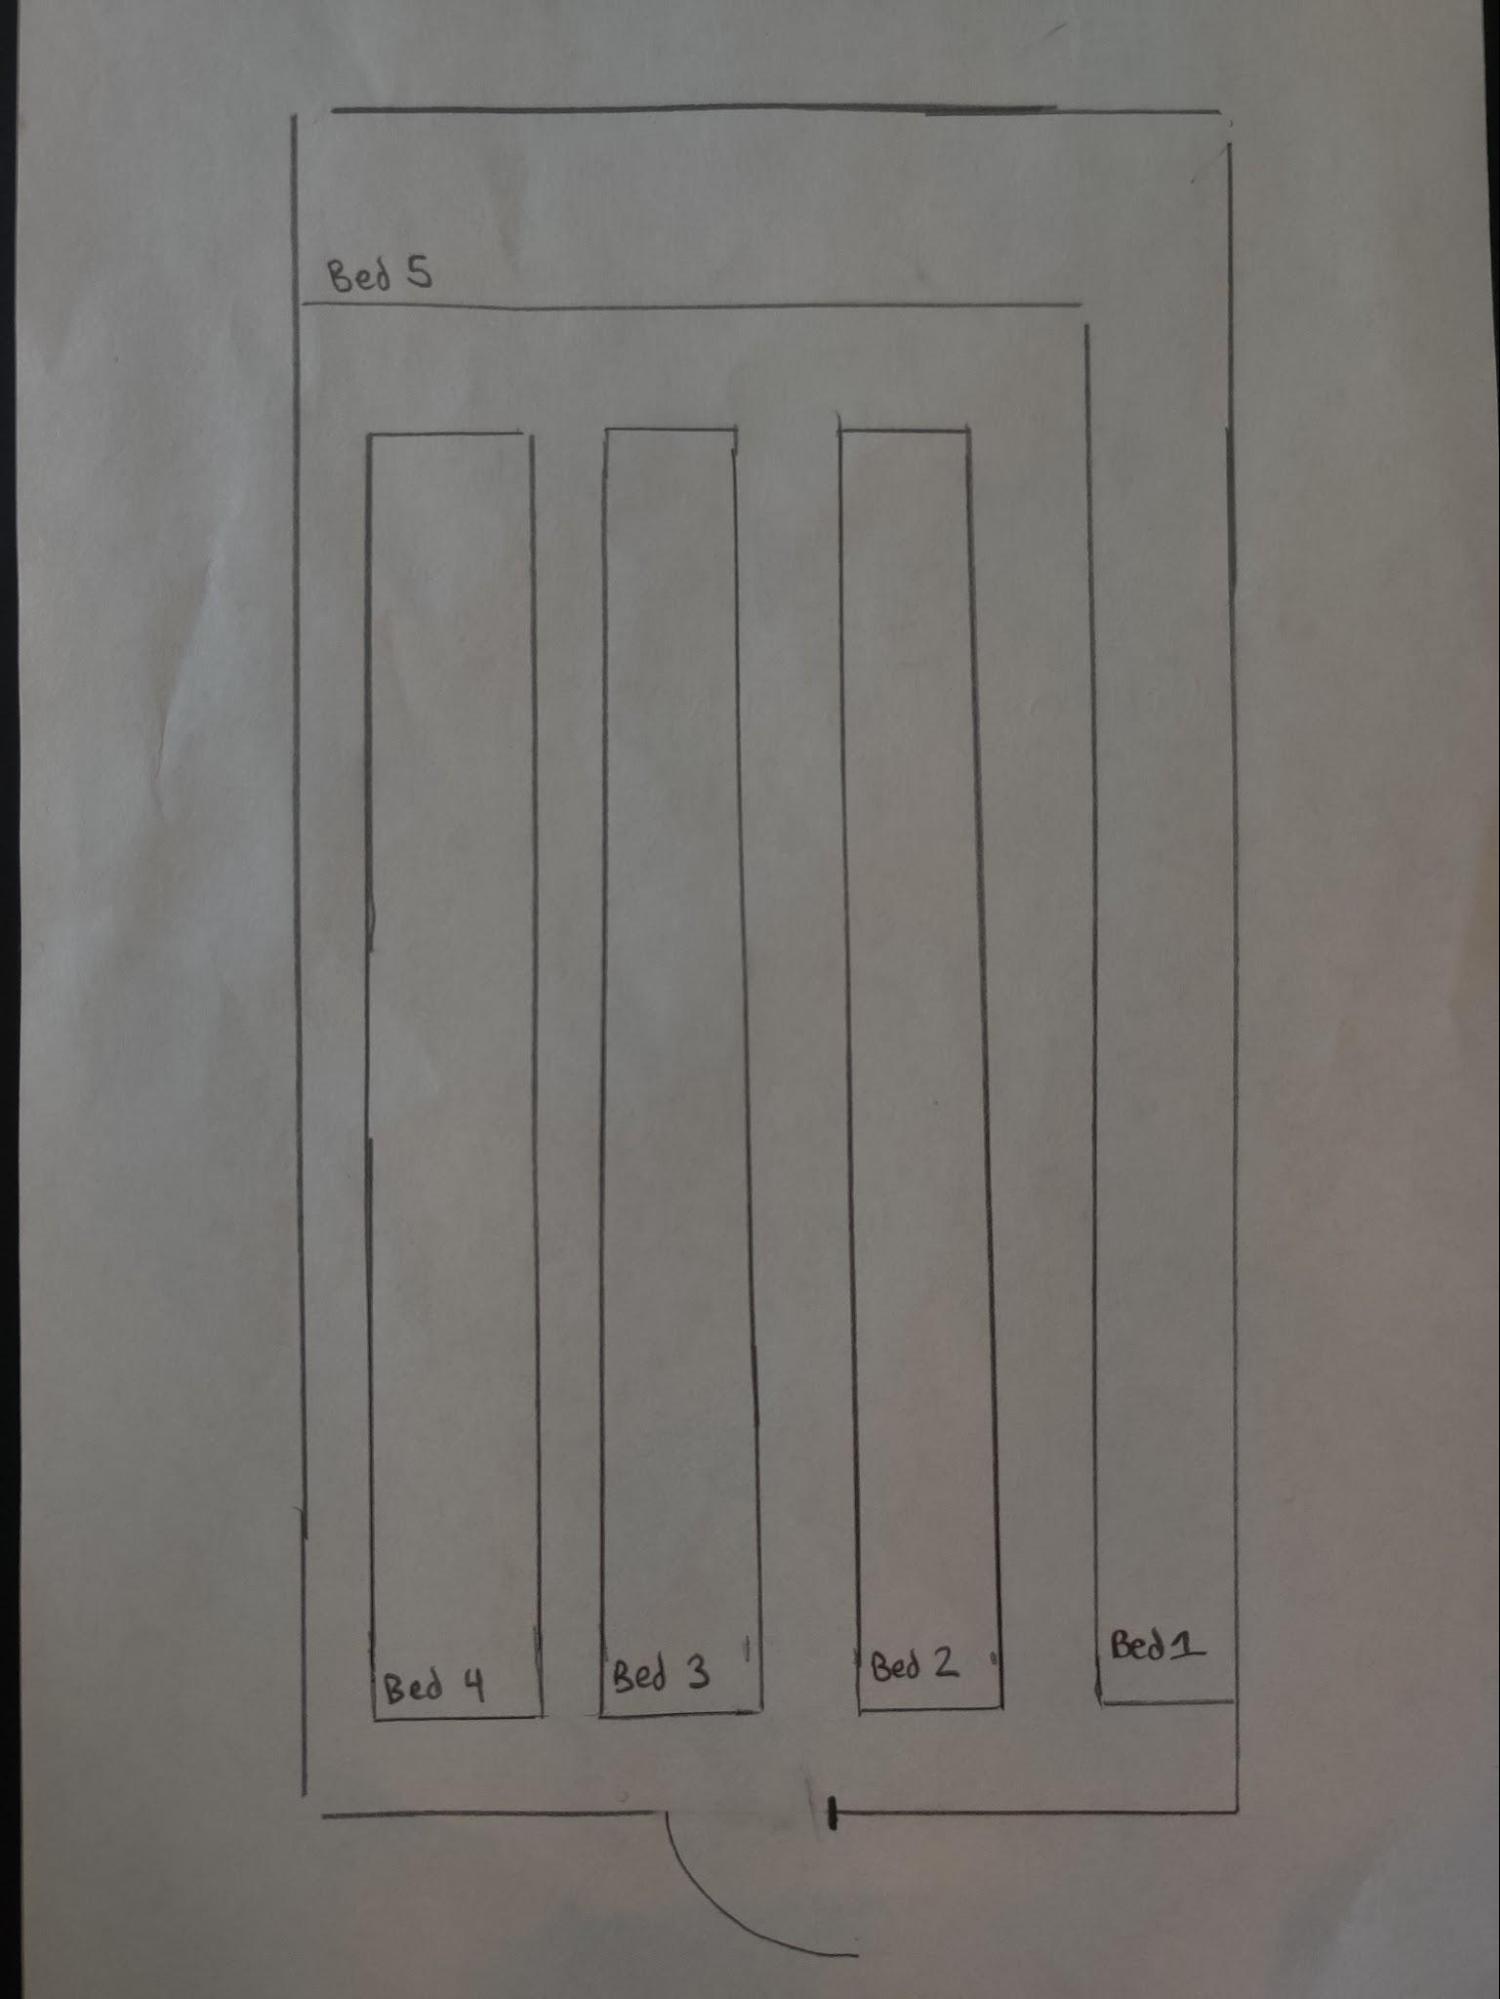 Bed 5
Bed 4
Bed 3
Bed 2
Bed 1